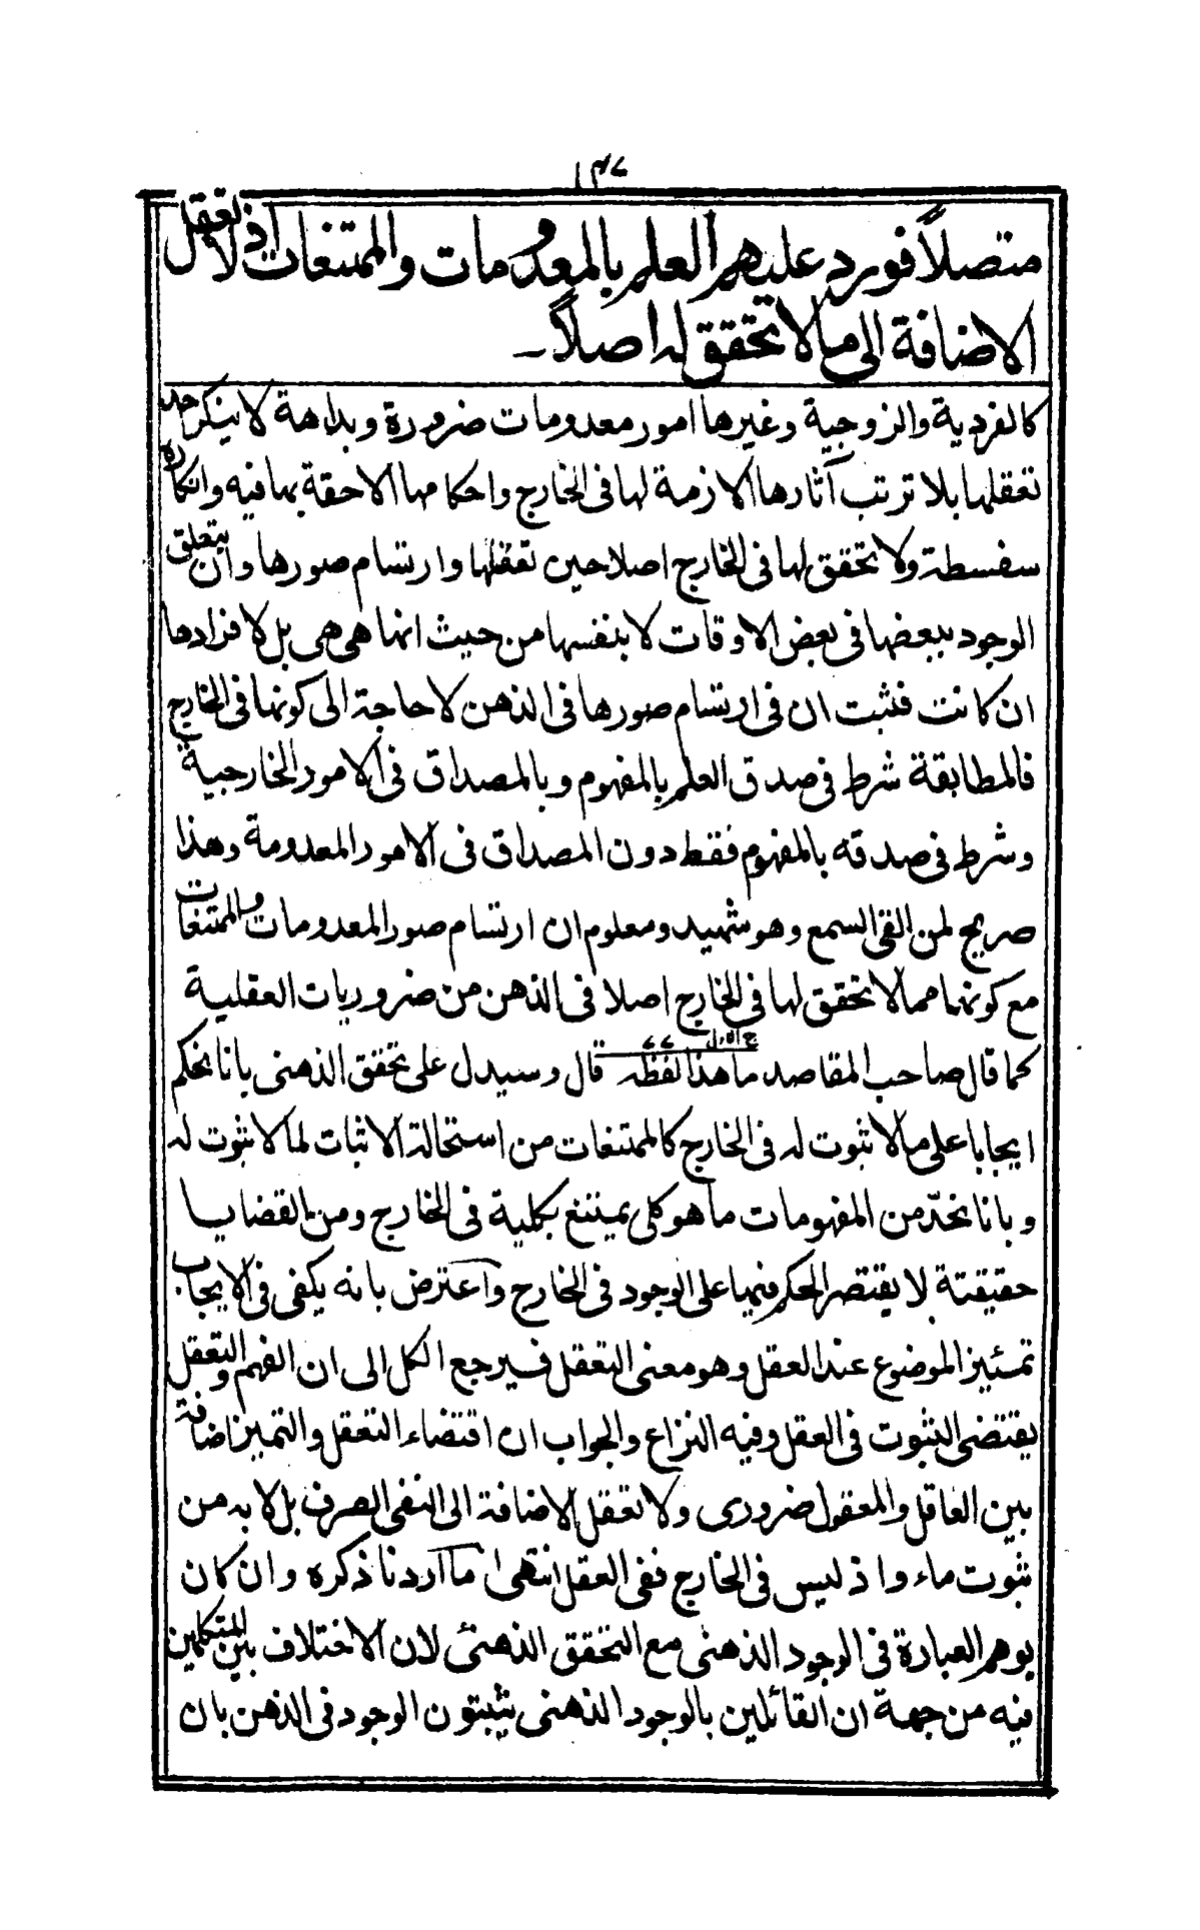 ١٣٧
متصلاً فورد عليهم العلم بالمعدومات والممتنعات اذ لا تعقل
الاضافة الى ما لا تحقق له اصلاً ـ
كالفردية والزوجية وغيرها امور معدومات ضرورة وبداهة لا ينكر احد
تعقلها بلا ترتب آثارها الازمة لها فى الخارج واحكامها الاحقة بها فيه وانكاره
سفسطة ولا تحقق لها فى الخارج اصلا حين تعقلها وارتسام صورها وان يتعلق
الوجود ببعضها فى بعض الاوقات لا بنفسها من حيث انها هى هى بل لافرادها
ان كانت فثبت ان فى ارتسام صورها فى الذهن لا حاجة الى كونها فى الخارج
فالمطابقة شرط فى صدق العلم بالمفهوم وبالمصداق فى الامور الخارجية
وشرط فى صدقه بالمفهوم فقط دون المصداق فى الامور المعدومة وهذا
صريح لمن القى السمع وهو شهيد ومعلوم ان ارتسام صور المعدومات والممتنعات
مع كونها مما لا تحقق لها فى الخارج اصلا فى الذهن من ضروريات العقلية
كما قال صاحب المقاصد ما هذا لفظه قال وسيدل على تحقق الذهنى بانا نحكم
ايجابا على ما لا ثبوت له فى الخارج كالممتنعات من استحالة الاثبات لما لا ثبوت له
وبانا نجد من المفهومات ما هو كلى يمتنع بكلية فى الخارج ومن القضايا
حقيقتة لا يقتصر الحكم فيها على الوجود فى الخارج واعترض بانه يكفى فى الايجاب
تمييز الموضوع عند العقل وهو معنى التعقل فيرجع الكل الى ان الفهم والتعقل
يقتضى الثبوت فى العقل وفيه النزاع والجواب ان اقتضاء التعقل والتميز اضافة
بين العاقل والمعقول ضرورى ولا تعقل الاضافة الى النفى الصرف بل لا بد من
ثبوت ماء واذ ليس فى الخارج ففى العقل انتهى ما اردنا ذكره وان كان
يوهم العبارة فى الوجود الذهنى مع التحقق الذهنئ لان الاختلاف بين المتكلمين
فيه من جهة ان القائلين بالوجود الذهنى يثبتون الوجود فى الذهن بان